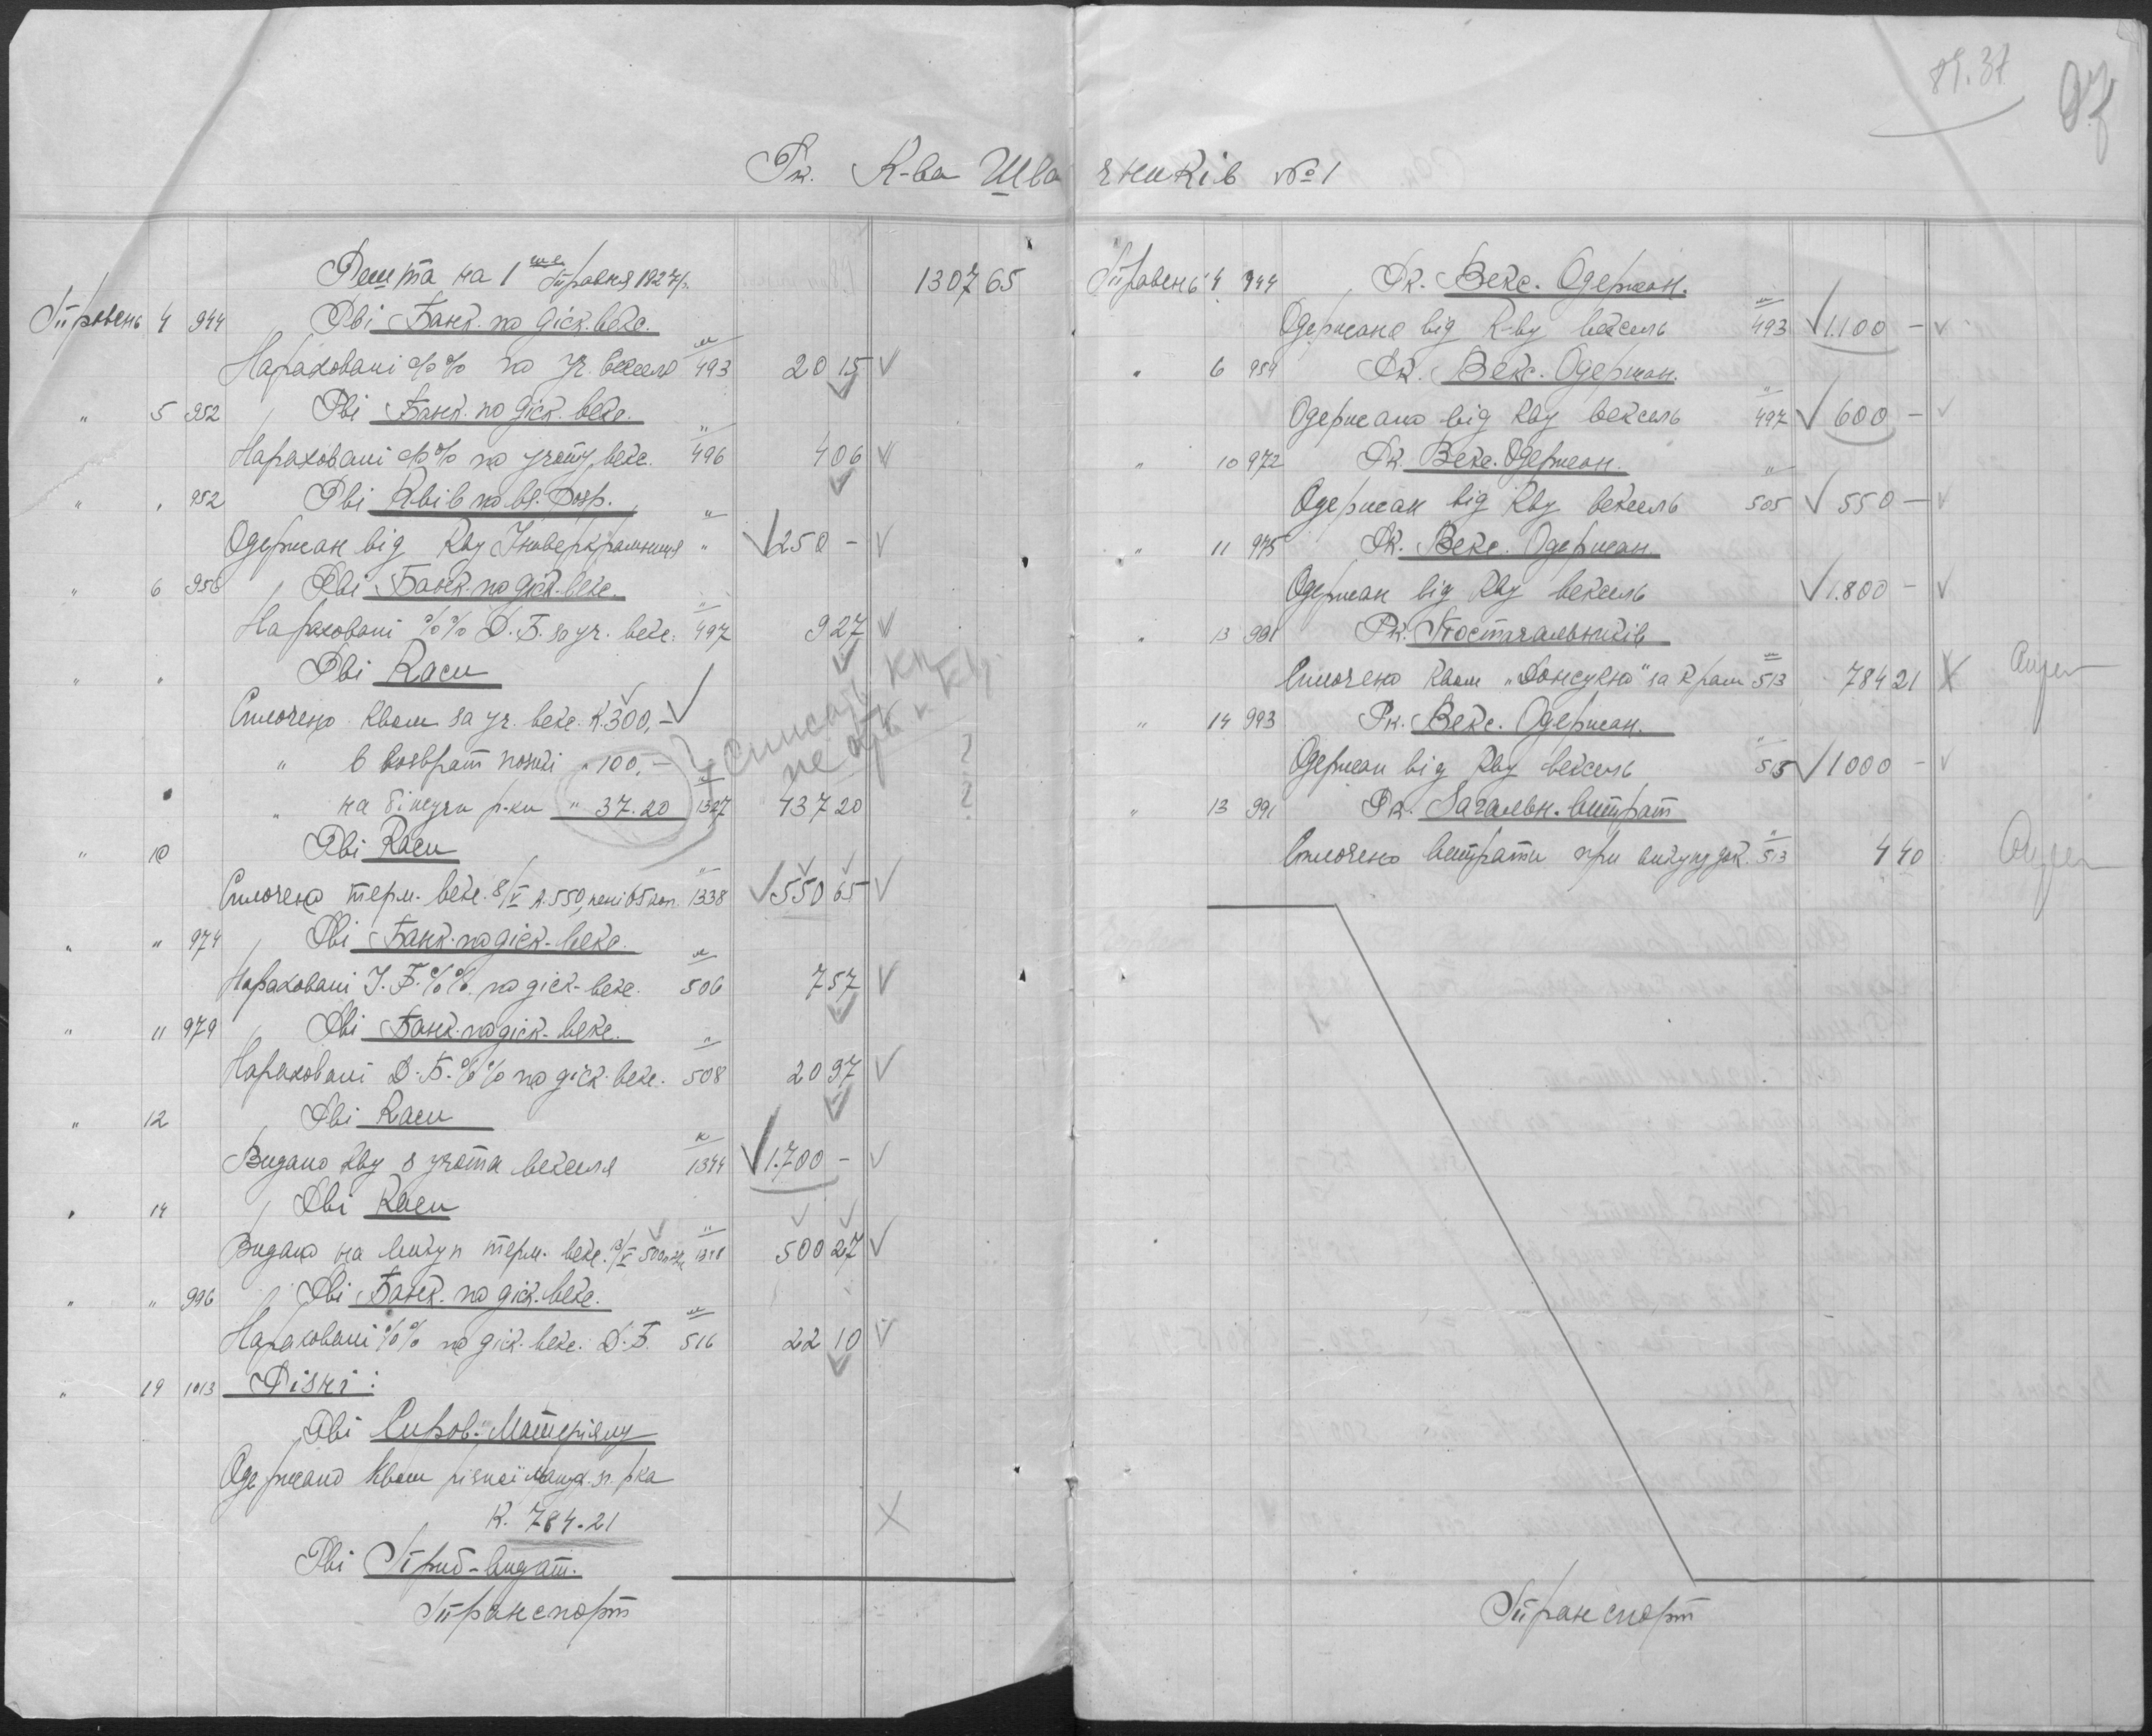 89.31
97
Рк. К-ва Швачників №1
Решта на 1ше Травня 1927р. 1307 65
Травень 4 944 Рві Банк. по діск. векс.
Нараховані %% по уч. векселю 493 20 15
" 5 952 Рві Банк. по діск. векс.
Нараховані %% по учоту векс. 496 4 06
" " 952 Рві К-вів по вз. розр.
Одержан від К-ву " 250 –
" 6 956 Рві Банк. по діск. векс.
Нараховані %% Д. Б. за уч. векс. 497 9 27
" " Рві Каси
Сплочено К-вом за уч. векс. К. 300,–
" в возврат позики " 100,– ?
" на біжучи р-ки " 37.20 1327 437 20 ?
списать
" 10 Рві Каси
Сплочено терм. векс. 8/V К. 550, пені 65 коп. 1338 550 65
" " 974 Рві Банк. по діск. векс.
Нараховані У. Б. %% по діск. векс. 506 7 57
" 11 979 Рві Банк. по діск. векс.
Нараховані Д. Б. %% по діск. векс. 508 20 97
" 12 Рві Каси
Видано К-ву з учота векселя 1344 1.700 –
" 14 Рві Каси
Видано на викуп терм. векс. 13/V 500 500 27
" " 996 Рві Банк. по діск. векс.
Нараховані %% по діск. векс. Д. Б. 516 22 10
" 19 1013 Різні:
Рві Сиров. Матеріялу
Одержано К-вом різної р-ка
К. 784.21
Рві Приб-видат.
Транспорт
Травень 4 944 Рк. Векс. Одержан.
Одержано від К-ву вексель 493 1.100 –
" 6 959 Рк. Векс. Одержан.
Одержано від К-ву вексель 497 600 –
" 10 972 Рк. Векс. Одержан.
Одержан від К-ву вексель 505 550 –
" 11 975 Рк. Векс. Одержан.
Одержан від К-ву вексель 1.800 –
" 13 991 Рк. Постачальників
Сплочено К-вом "Донсукно" за крам 513 784 21
" 14 993 Рк. Векс. Одержан.
Одержан від К-ву вексель 515 1000 –
" 13 991 Рк. Загальн. витрат
Сплочено витрати при викупу док. 513 4 40
Транспорт